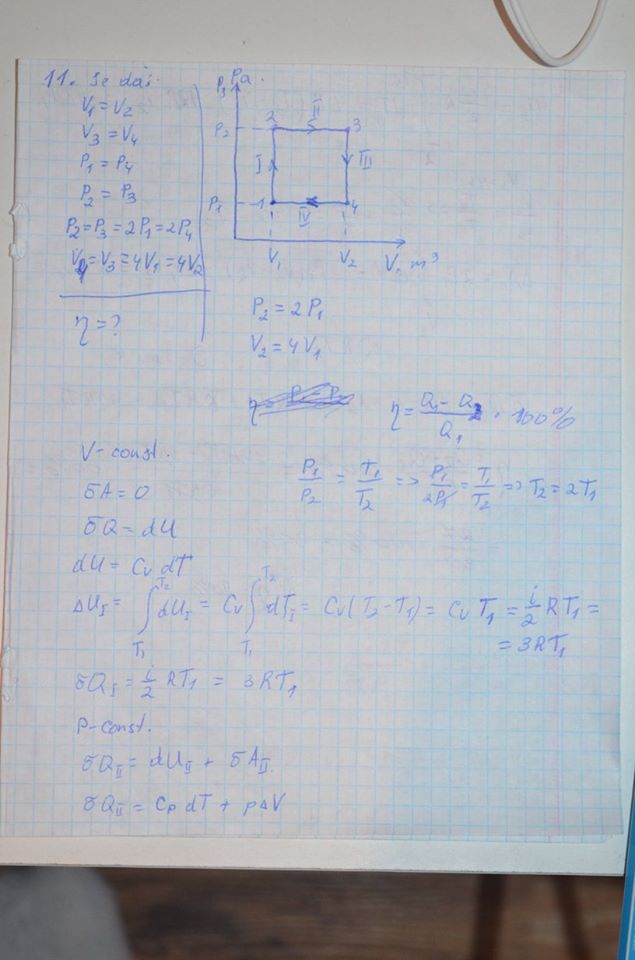 11. Se dă:
V₁ = V₂
V₃ = V₄
P₁ = P₄
P₂ = P₃
P₂ = P₃ = 2P₁ = 2P₄
V₄ = V₃ = 4V₁ = 4V₂
η = ?
P, Pa.
P₂ 2 II 3
I III
P₁ 1 IV 4
V₁ V₂ V, m³
P₂ = 2P₁
V₂ = 4V₁
η = (Q₁ - Q₂)/Q₁ · 100%
V-const.
P₁/P₂ = T₁/T₂ => P₁/2P₁ = T₁/T₂ => T₂ = 2T₁
δA = 0
δQ = dU
dU = Cv dT
ΔU_I = ∫_{T₁}^{T₂} dU_I = Cv ∫_{T₁}^{T₂} dT_I = Cv(T₂ - T₁) = Cv T₁ = i/2 RT₁ =
= 3RT₁
δQ_I = i/2 RT₁ = 3RT₁
P-const.
δQ_II = dU_II + δA_II.
δQ_II = Cp dT + pΔV